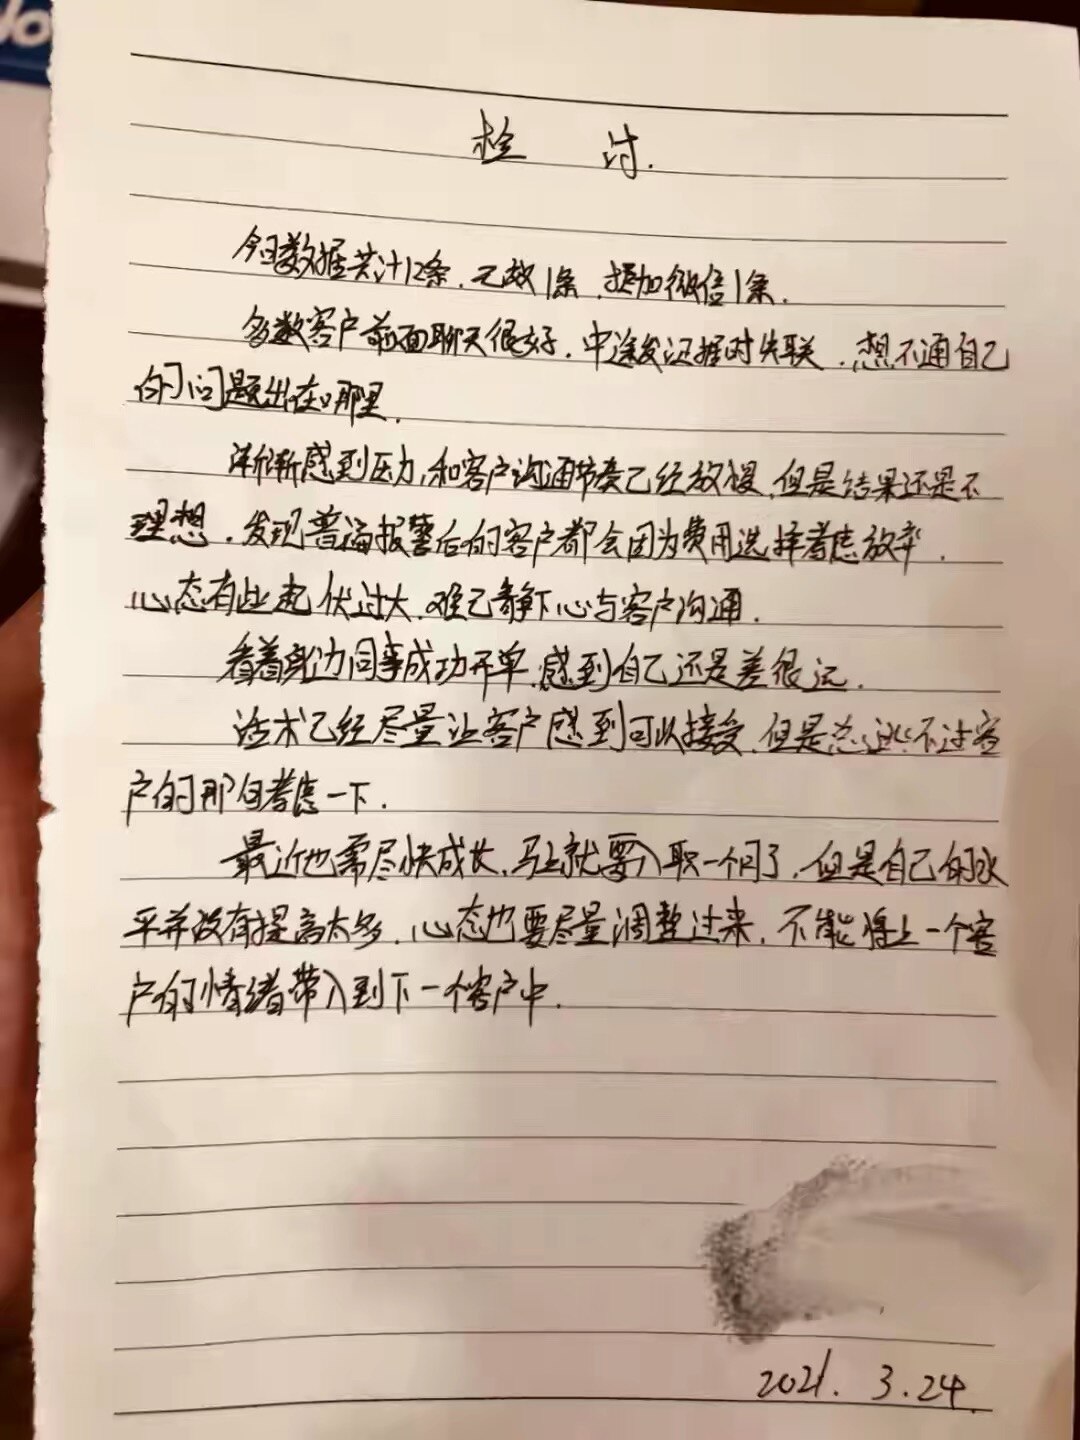 检 讨.
今日数据共计12条.无效1条.提加微信1条.
多数客户前面聊天很好.中途发证据时失联.想不通自己
的问题出在哪里.
渐渐感到压力,和客户沟通节奏已经放慢.但是结果还是不
理想.发现普遍报警后的客户都会因为费用选择考虑放弃.
心态有些起伏过大.难已静下心与客户沟通.
看着身边同事成功开单.感到自己还是差很远.
话术已经尽量让客户感到可以接受.但是总逃不过客
户的那句考虑一下.
最近也需尽快成长.马上就要入职一个月了.但是自己的水
平并没有提高太多.心态也要尽量调整过来.不能将上一个客
户的情绪带入到下一个客户中.
2021.3.24.